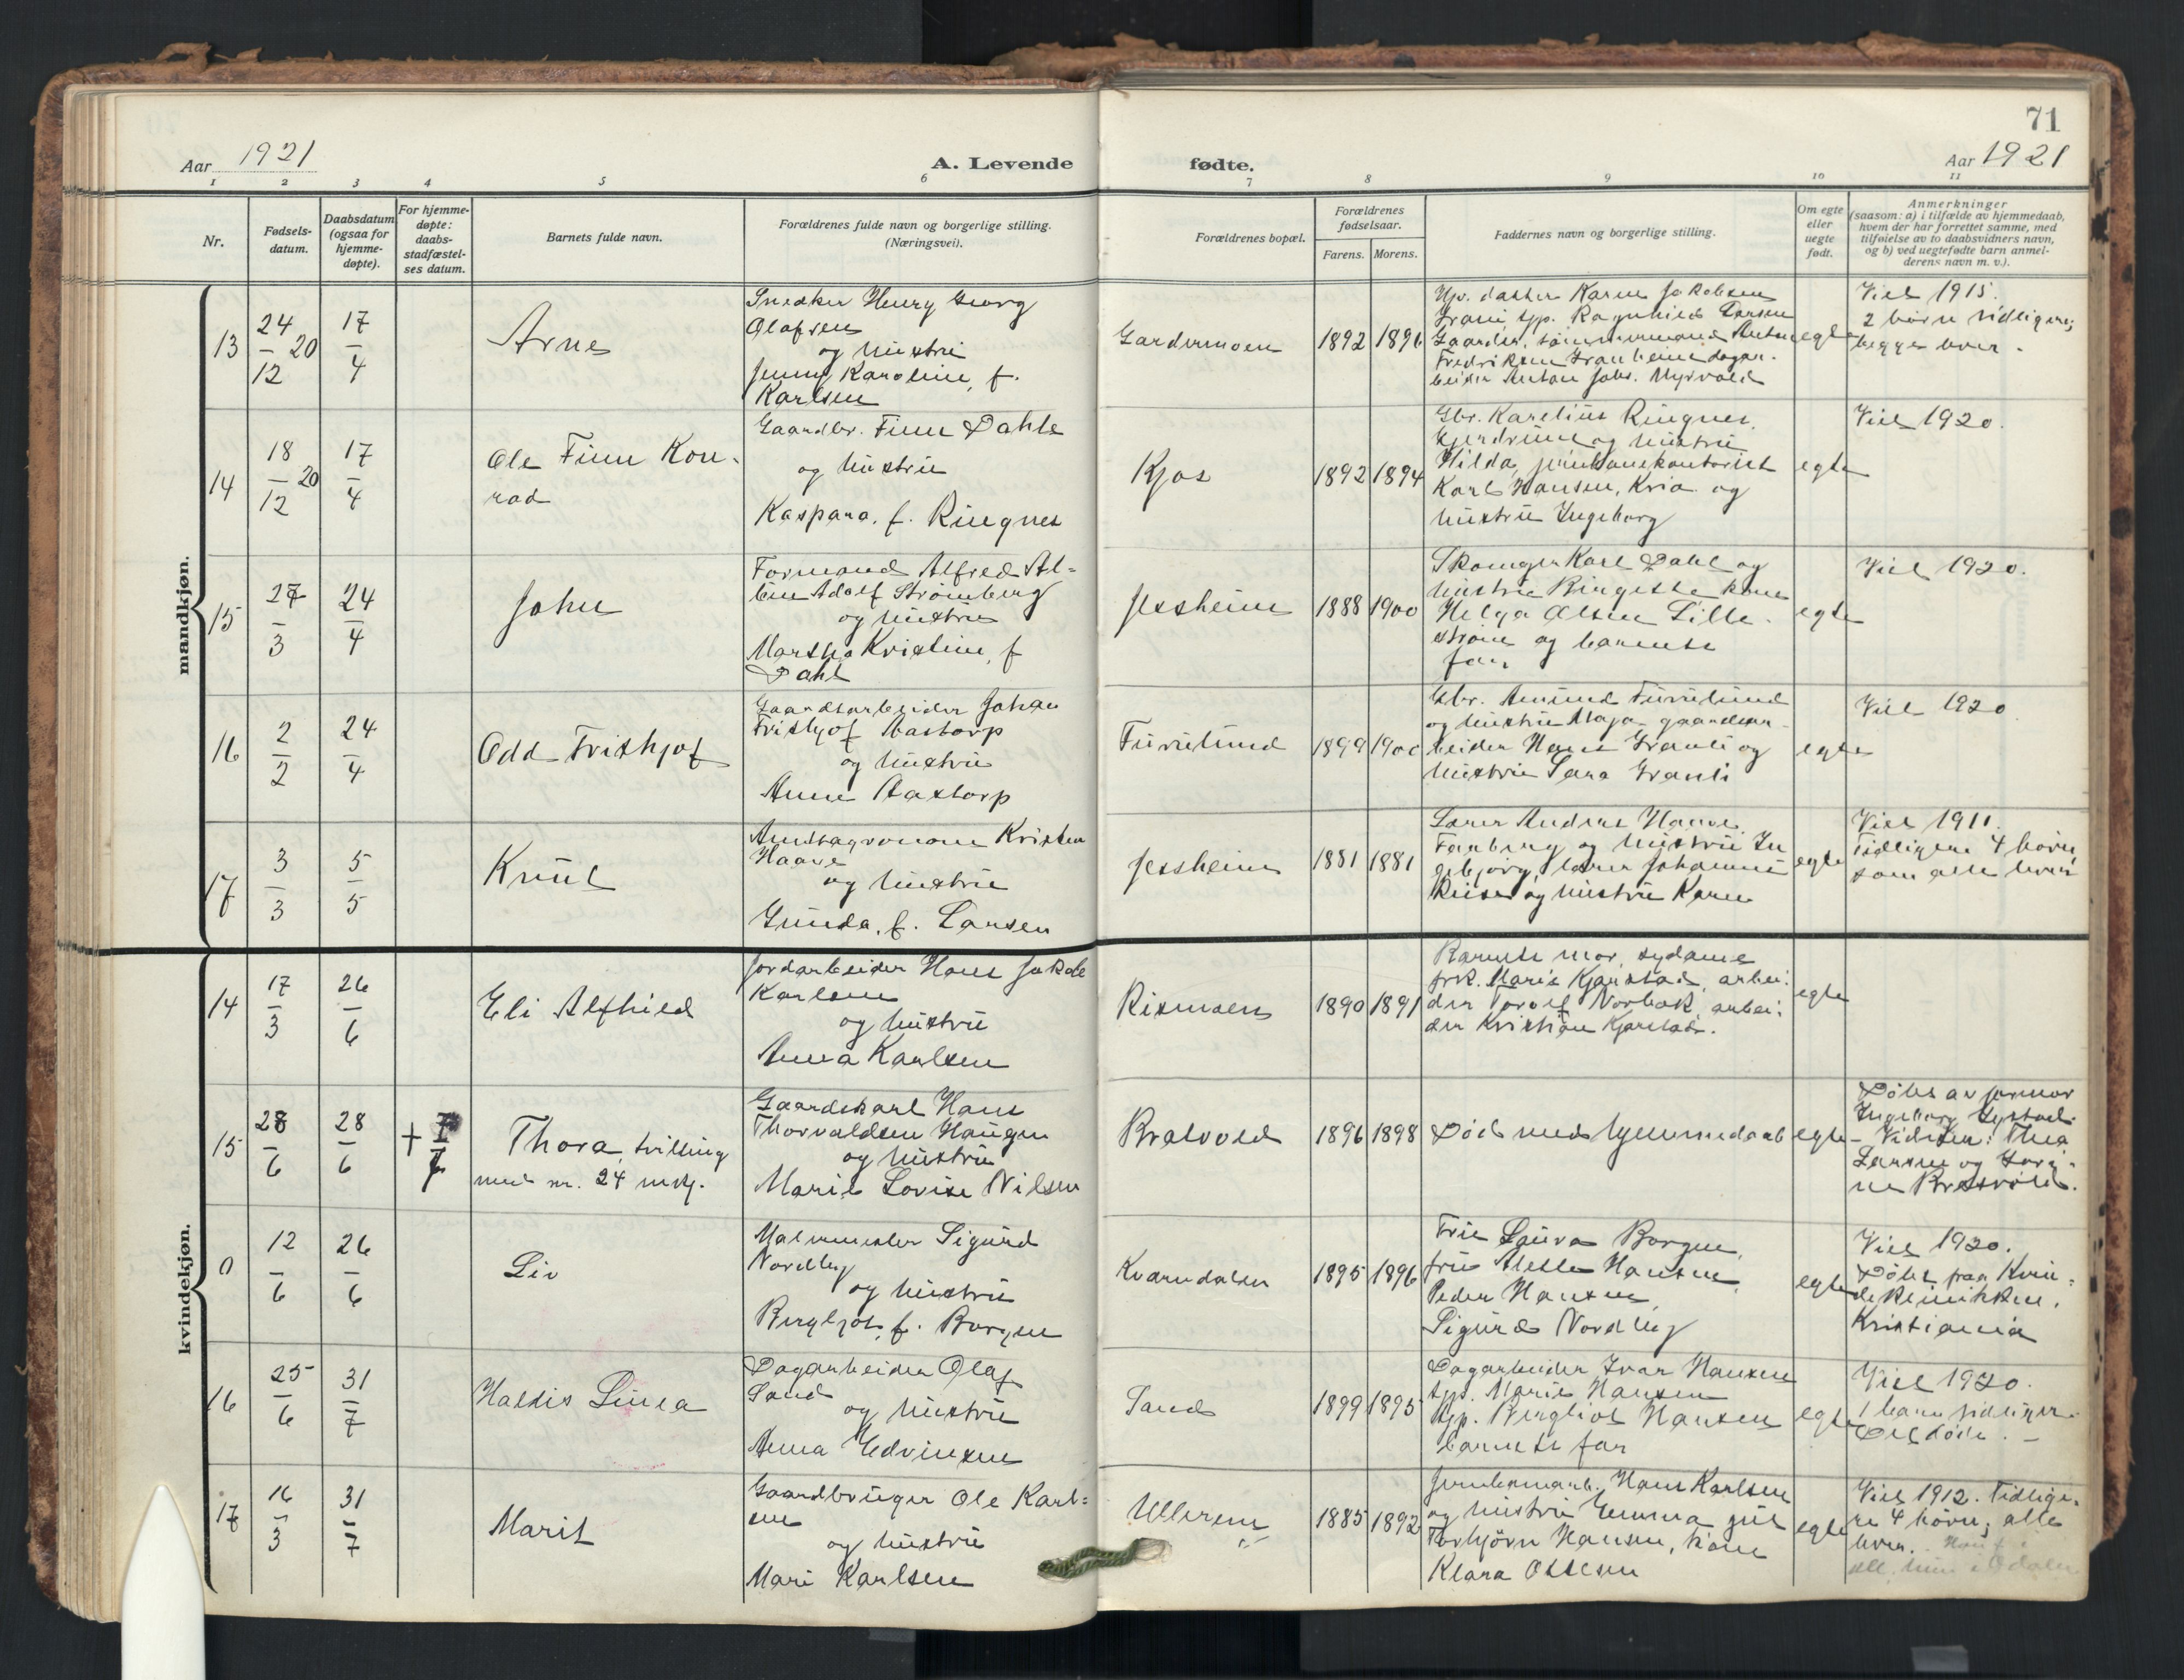 71
Aar 1921
A. Levende
fødte.
Aar 1921
1 2 3 4 5 6 7 8 9 10 11
Nr.
Fødsels-
datum.
Daabsdatum
(ogsaa for
hjemme-
døpte).
For hjemme-
døpte:
daabs-
stadfæstel-
ses datum.
Barnets fulde navn.
Forældrenes fulde navn og borgerlige stilling.
(Næringsvei).
Forældrenes bopæl.
Forældrenes
fødselsaar.
Farens. Morens.
Faddernes navn og borgerlige stilling.
Om egte
eller
uegte
født.
Anmerkninger
(saasom: a) i tilfælde av hjemmedaab,
hvem der har forrettet samme, med
tilføielse av to daabsvidners navn,
og b) ved uegtefødte barn anmel-
derens navn m. v.).
mandkjøn.
13
24/12 20
17/4
Arne
Snedker Henry Georg
Olafsen
og hustru
Jenny Karoline, f.
Karlsen
Gardermoen
1892 1896
Karen Jakobsen
Ragnhild Larsen
Fredriksen
Anton Johs. Myrvold
egte
Viet 1915.
2 børn tidligere;
begge lever.
14
18/12 20
17/4
Ole Finn Kon-
rad
Gaardbr. Finn Dahle
og hustru
Kaspara, f. Ringnes
Kjos
1892 1894
Gbr. Karelius Ringnes,
Gjerdrum og hustru
Hilda, jernbanekontorist
Karl Hansen, Kria og
hustru Ingeborg
egte
Viet 1920.
15
27/3
24/4
John
Formand Alfred Al-
bin Adolf Strömberg
og hustru
Martha Kristine, f
Dahl
Jessheim
1888 1900
Skomger Karl Dahl og
hustru Birgitte kone
Helga Olsen Lille-
strøm og barnets
far
egte
Viet 1920.
16
2/2
24/4
Odd Frithjof
Gaardsarbeider Johan
Frithjof Aastorp
og hustru
Anne Aastorp
Furulund
1899 1900
Gbr. Amund Furulund
og hustru Maja, gaardsar-
beider Hans Granli og
hustru Sara Granli
egte
Viet 1920
17
3/3
5/5
Knut
Amtsagronom Kristen
Haave
og hustru
Gunda, f. Larsen
Jessheim
1881 1881
Lærer Andreas Haave,
Fanberg og hustru In
gebjørg, lærer Johannes
Riise og hustru Karen
egte
Viet 1911.
Tidligere 4 børn,
som alle lever
kvindekjøn.
14
17/3
26/6
Eli Alfhild
Jordarbeider Hans Jakob
Karlsen
og hustru
Anna Karlsen
Rismoen
1890 1891
Barnets mor, sydame
frk. Marie Kjærstad, arbei-
der Torolf Norbak, arbei-
der Kristian Kjærstad.
egte
15
28/6
28/6
+
Thora, tvilling
med nr. 24 mkj.
Gaardskarl Hans
Thorvaldsen Haugen
og hustru
Marie Lovise Nilsen
Bratvold
1896 1898
Død med hjemmedaab
egte
Døbt av jormor
Ingeborg Lystad.
- Vidner: Thea
Larsen og Jørgi-
ne Bratvold.
0
12/6
26/6
Liv
Malermester Sigurd
Nordby
og hustru
Bergljot, f. Borgen
Kverndalen
1895 1896
Fru Laura Borgen,
fru Alette Hansen,
Peder Hansen,
Sigurd Nordby
egte
Viet 1920.
Døbt paa Kvin-
deklinikken,
Kristiania
16
25/6
31/7
Haldis Linea
Dagarbeider Olaf
Sand
og hustru
Anna Edvinsen
Sand
1899 1895
Dagarbeider Ivar Hansen
tjp. Marie Hansen
tjp. Bergliot Hansen
barnets far
egte
Viet 1920.
1 barn tidligere.
Det døde. -
17
16/3
31/7
Marit
Gaardbruger Ole Karl-
sen
og hustru
Mari Karlsen
Ullerem
1885 1892
Jernbanearb. Hans Karlsen
og hustru Emma, gut
Torbjørn Hansen, kone
Klara Ottesen
egte
Viet 1912. Tidlige-
re 4 børn; alle
lever.